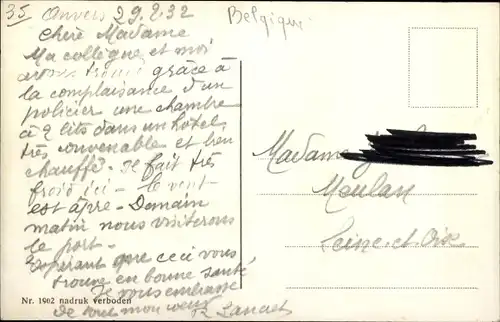 35 Anvers 29.2.32 Belgique
Chère Madame
Ma collègue et moi
avons trouvé grâce à
la complaisance d'un
policier une chambre
à 2 lits dans un hotel
très convenable et bien
chauffé. Il fait très
froid ici - le vent
est âpre - Demain
matin nous visiterons
le port -
Espérant que ceci vous
trouve en bonne santé
Je vous embrasse
de tout mon coeur
Nr. 1902 nadruk verboden
Madame
Meulan
Seine-et-Oise